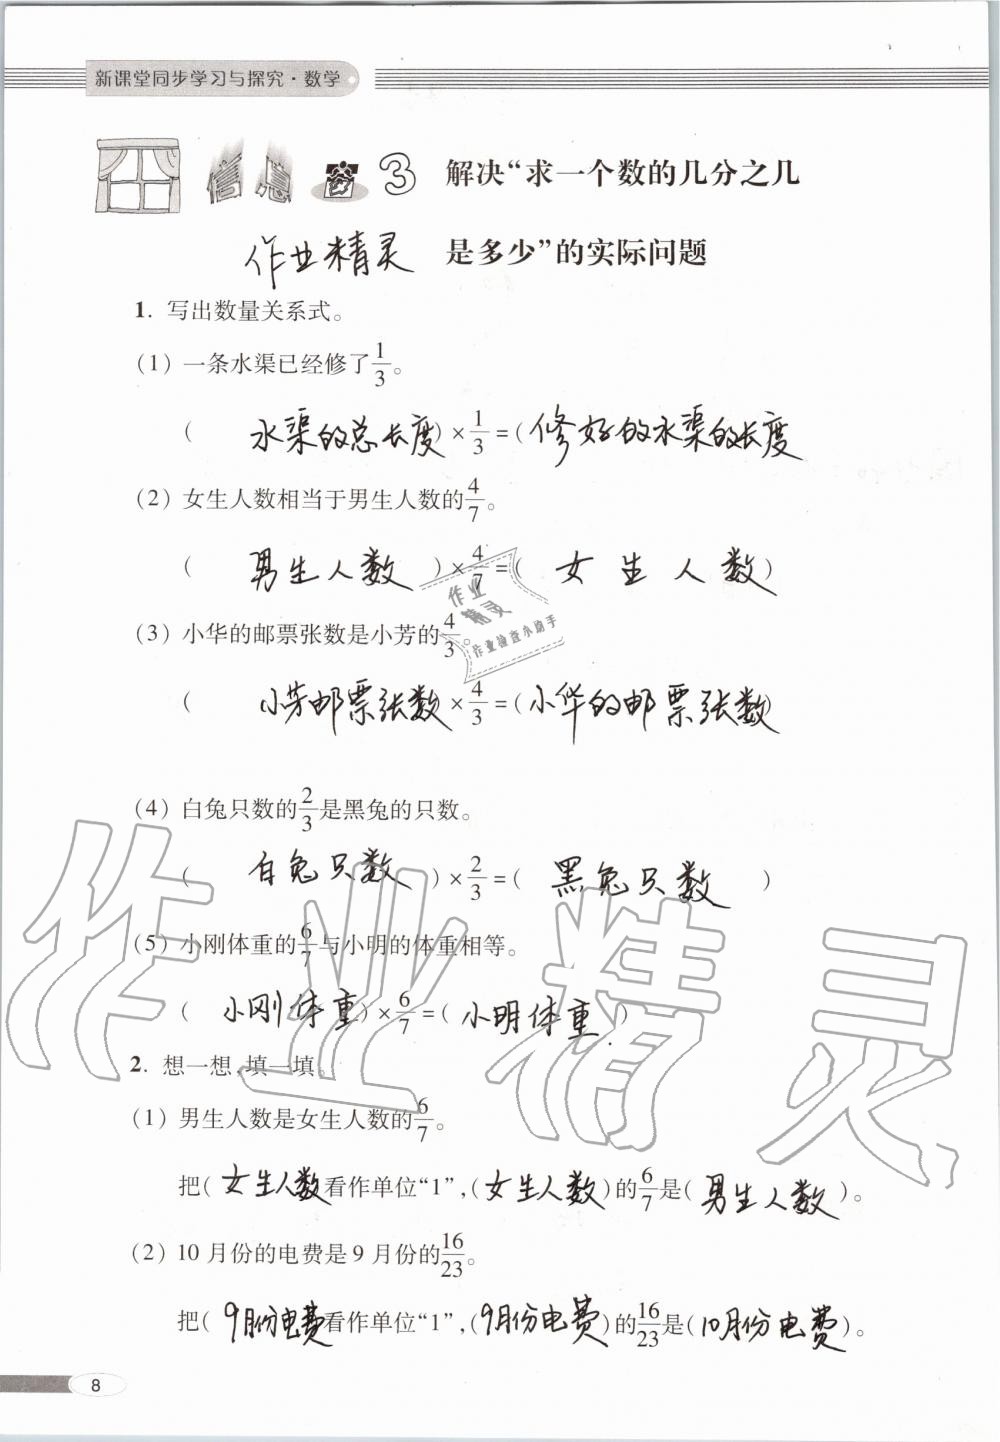 新课堂同步学习与探究·数学
信息窗3 解决“求一个数的几分之几
作业精灵 是多少”的实际问题
1. 写出数量关系式。
(1) 一条水渠已经修了1/3。
( 水渠的总长度)×1/3=(修好的水渠的长度
(2) 女生人数相当于男生人数的4/7。
( 男生人数 )×4/7=( 女生人数)
作业
精灵
作业检查小助手
(3) 小华的邮票张数是小芳的4/3。
( 小芳邮票张数×4/3=(小华的邮票张数)
(4) 白兔只数的2/3是黑兔的只数。
( 白兔只数 )×2/3=( 黑兔只数 )
(5) 小刚体重的6/7与小明的体重相等。
( 小刚体重)×6/7=(小明体重 )
作业精灵
2. 想一想,填一填。
(1) 男生人数是女生人数的6/7。
把(女生人数看作单位“1”,(女生人数)的6/7是(男生人数)。
(2) 10月份的电费是9月份的16/23。
把(9月份电费看作单位“1”,(9月份电费)的16/23是(10月份电费)。
8